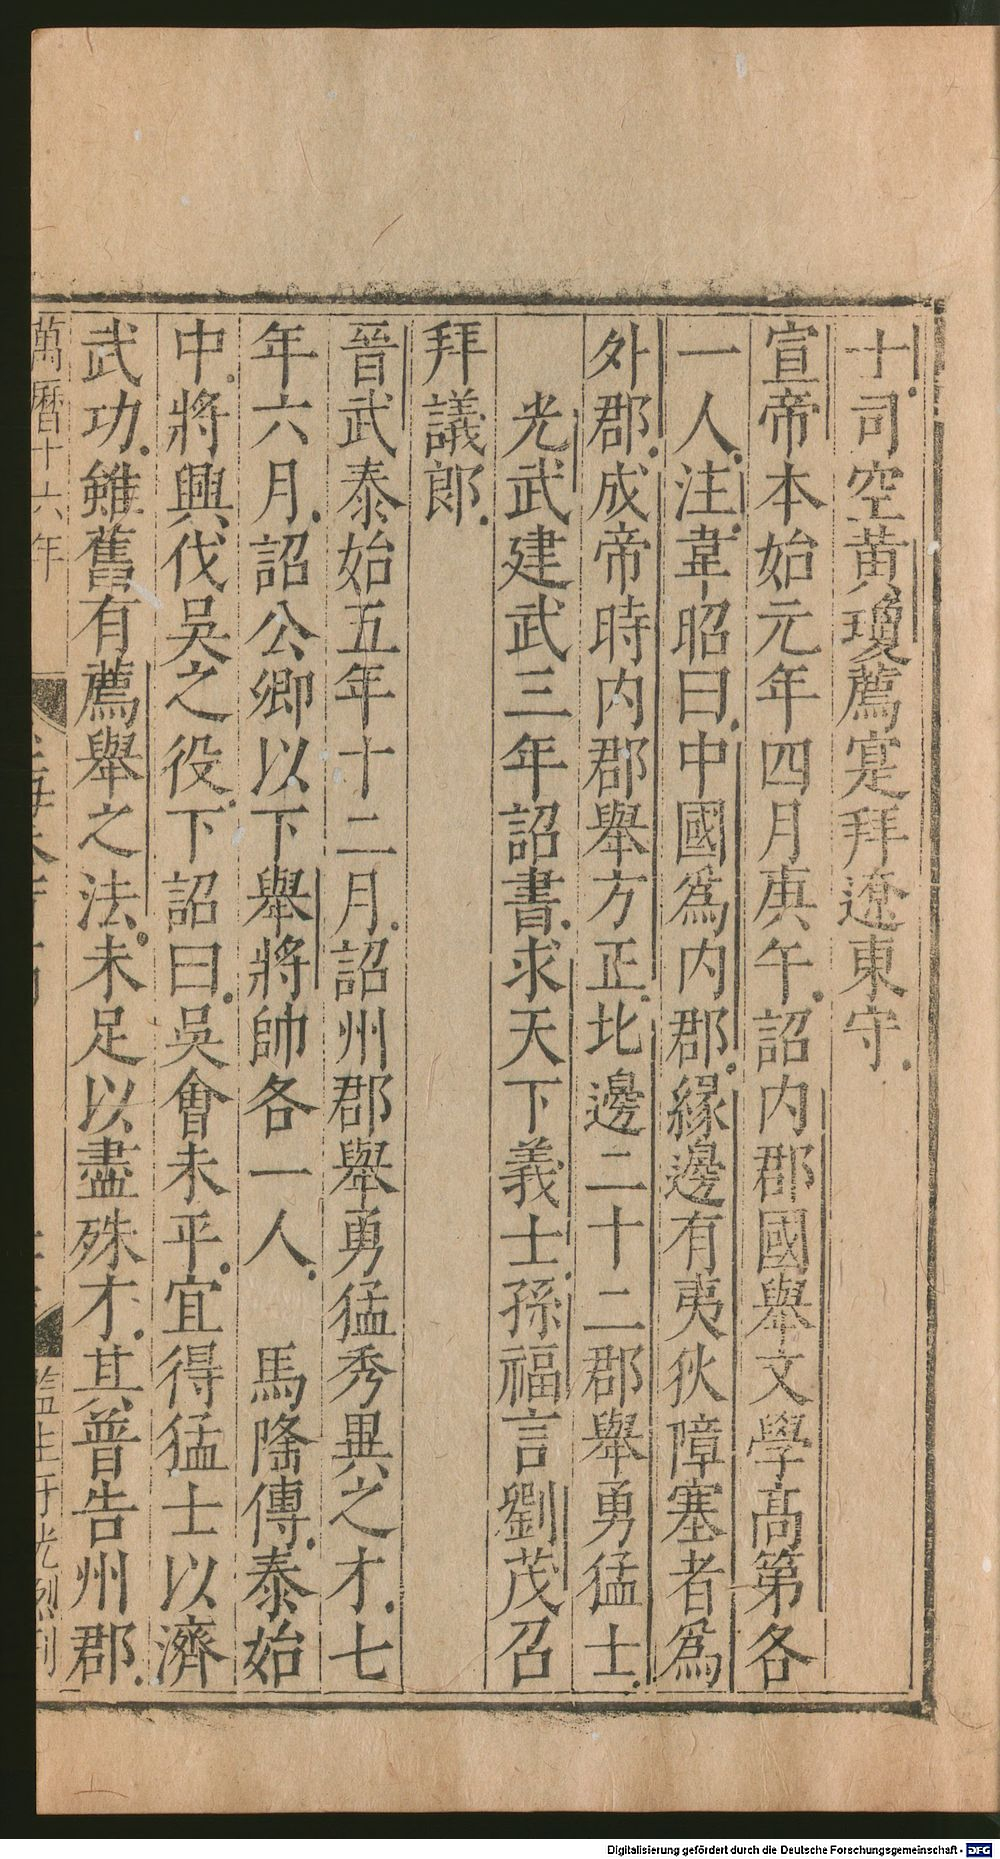 十司空黄瓊薦寔拜遼東守
宣帝本始元年四月庚午詔内郡國舉文學髙第各
一人注韋昭曰中國爲内郡縁邊有夷狄障塞者爲
外郡成帝時内郡舉方正北邊二十二郡舉勇猛士
光武建武三年詔書求天下義士孫福言劉茂召
拜議郎
晉武泰始五年十二月詔州郡舉勇猛秀異之才七
年六月詔公卿以下舉將帥各一人　馬隆傳泰始
中將興伐吳之役下詔曰吳會未平宜得猛士以濟
武功雖舊有薦舉之法未足以盡殊才其普告州郡
萬曆十六年
監生
Digitalisierung gefördert durch die Deutsche Forschungsgemeinschaft - DFG